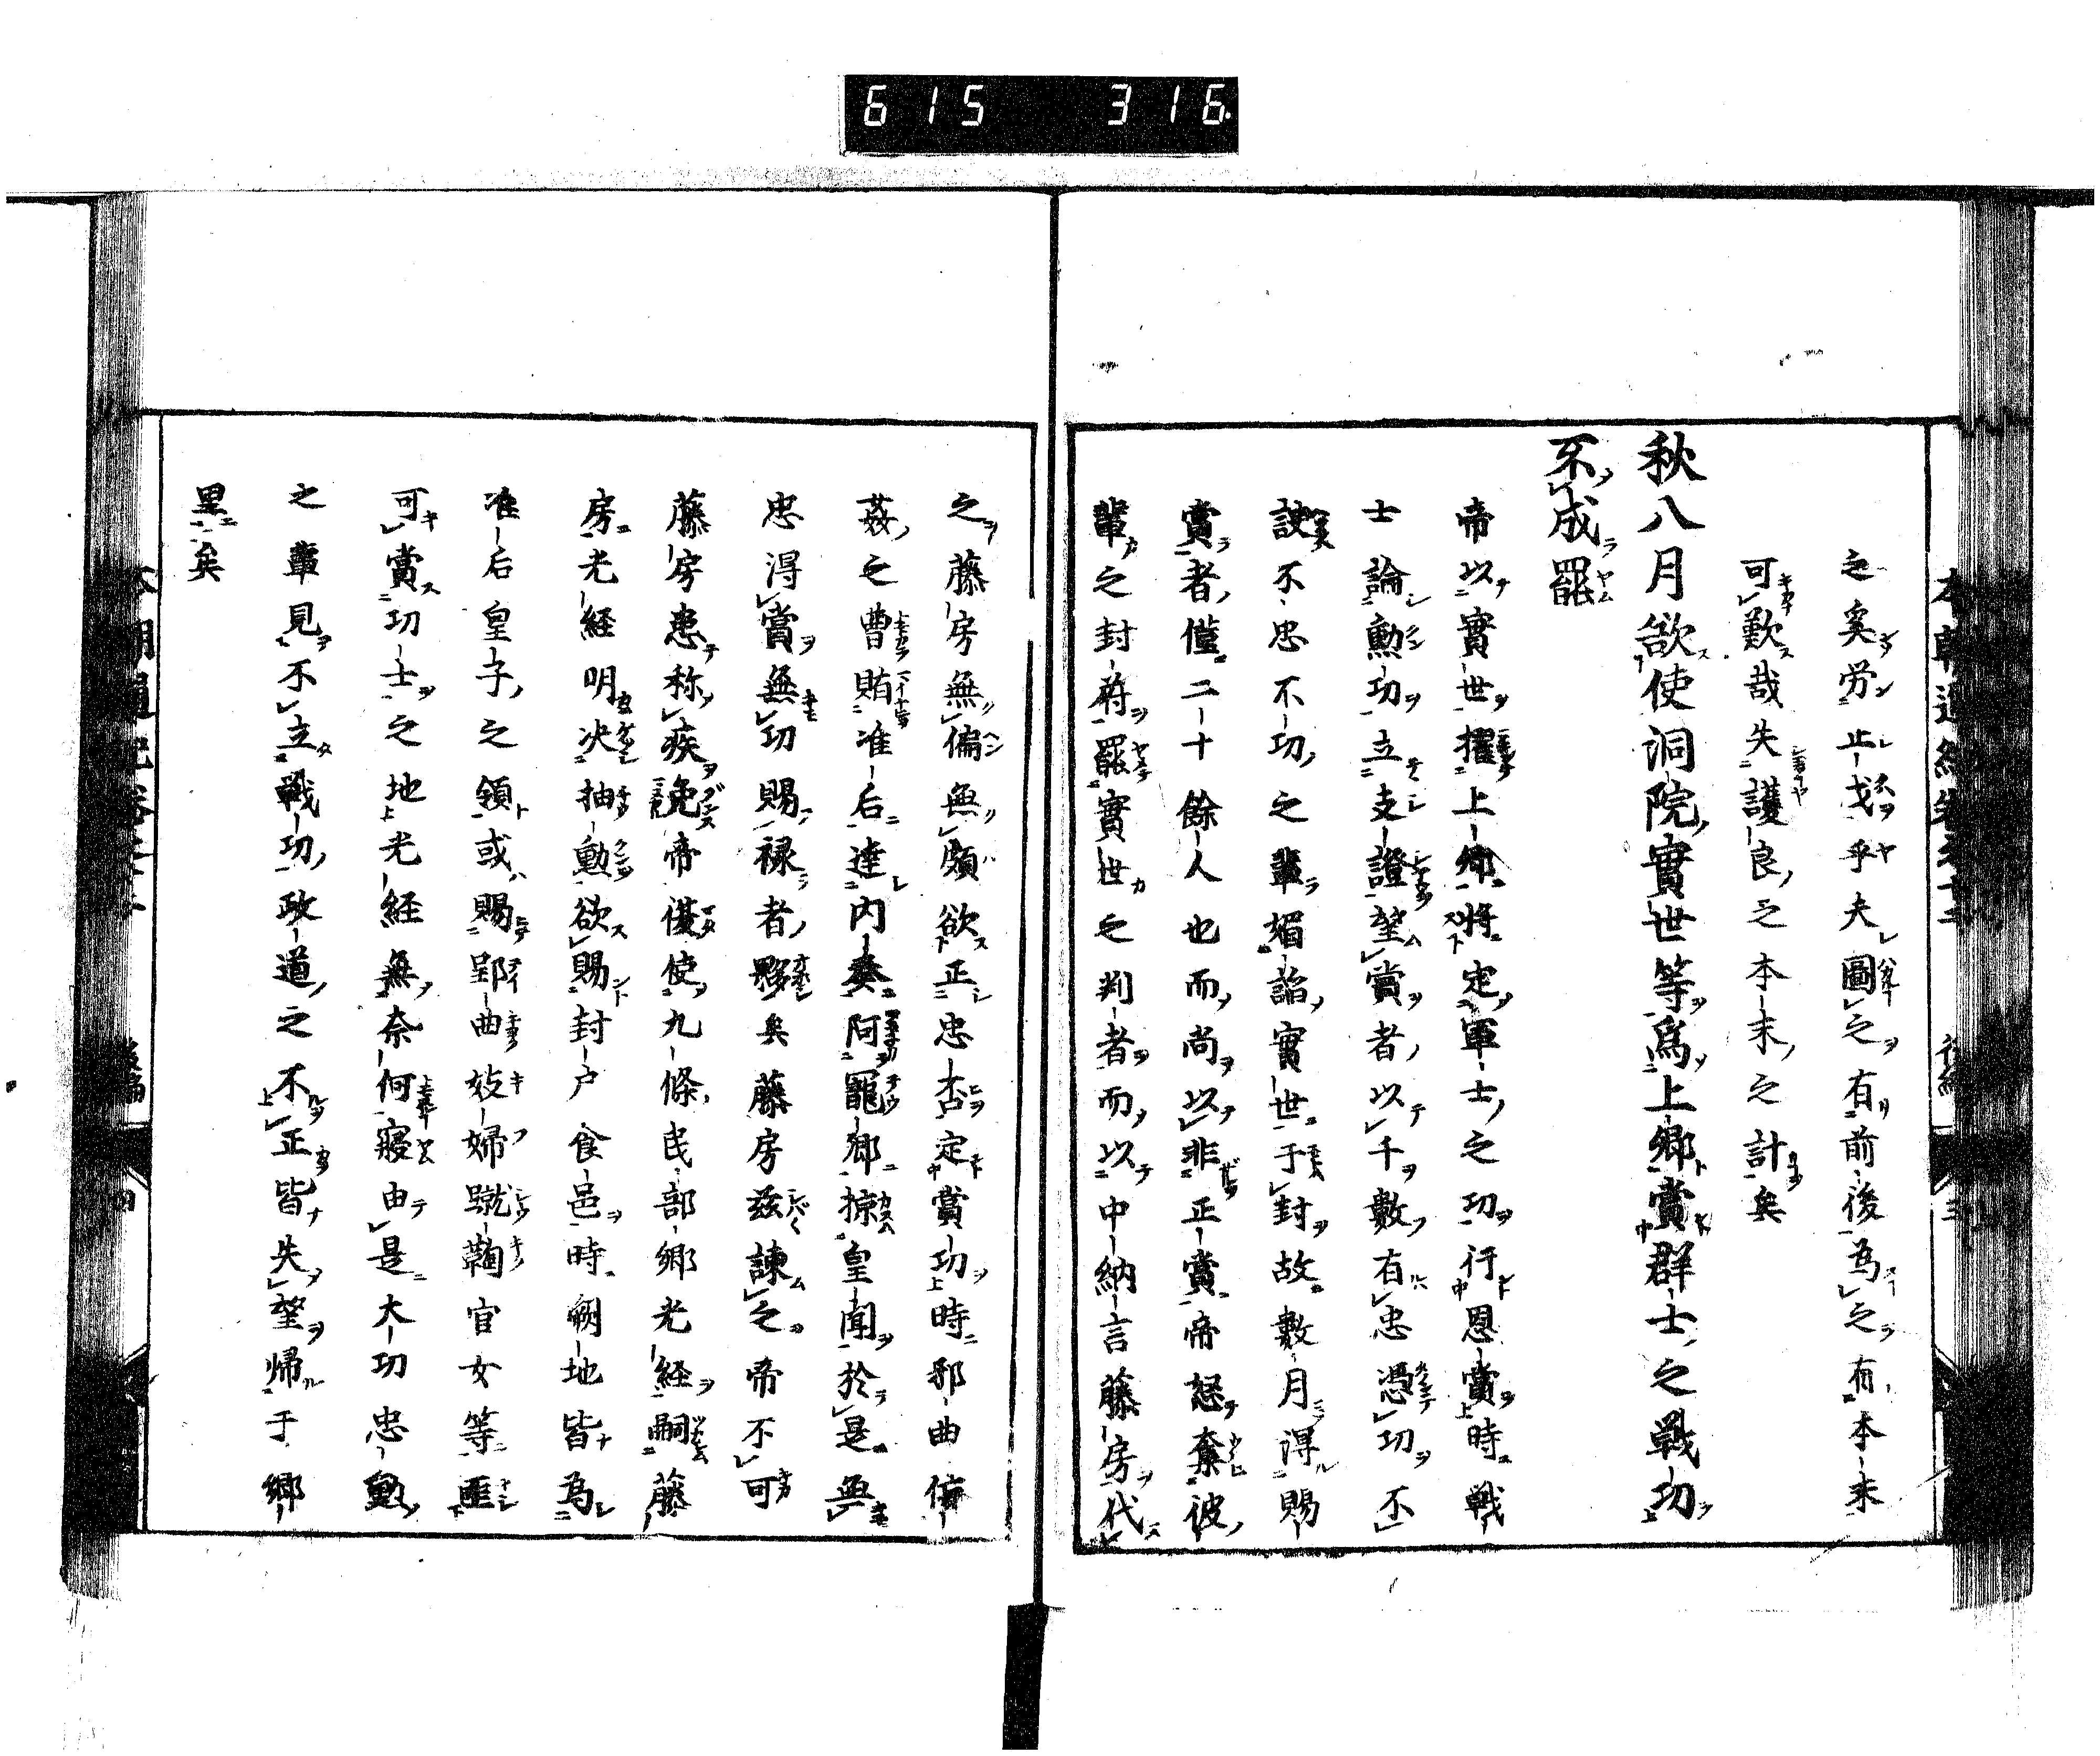 615 316
之奚労止戈乎夫圖之有前後為之有本末
可歎哉失護良之本末之計矣
秋八月欲使洞院實世等為上郷賞群士之戰功
不成罷
帝以實世擢上郷將定軍士之功行恩賞時戦
士論勲功立支證望賞者以千數有忠憑功不
諛不忠不功之輩媚諂實世于封故數月得賜
賞者僅二十餘人也而尚以非正賞帝怒奪彼
輩之封爵罷實世之判者而以中納言藤房代
之藤房無偏無頗欲正忠否定賞功時邪曲侫
姦之曹賄准后達内奏阿寵郷掠皇聞於是無
忠得賞無功賜禄者夥矣藤房茲諫之帝不可
藤房患称疾免帝復使九條民部郷光経嗣藤
房光経明决抽勲欲賜封戸食邑時朝地皆為
准后皇子之領或賜郢曲妓婦蹴鞠官女等匪
可賞功士之地光経無奈何寝由是大功忠勲
之輩見不立戰功政道之不正皆失望帰于郷
里矣